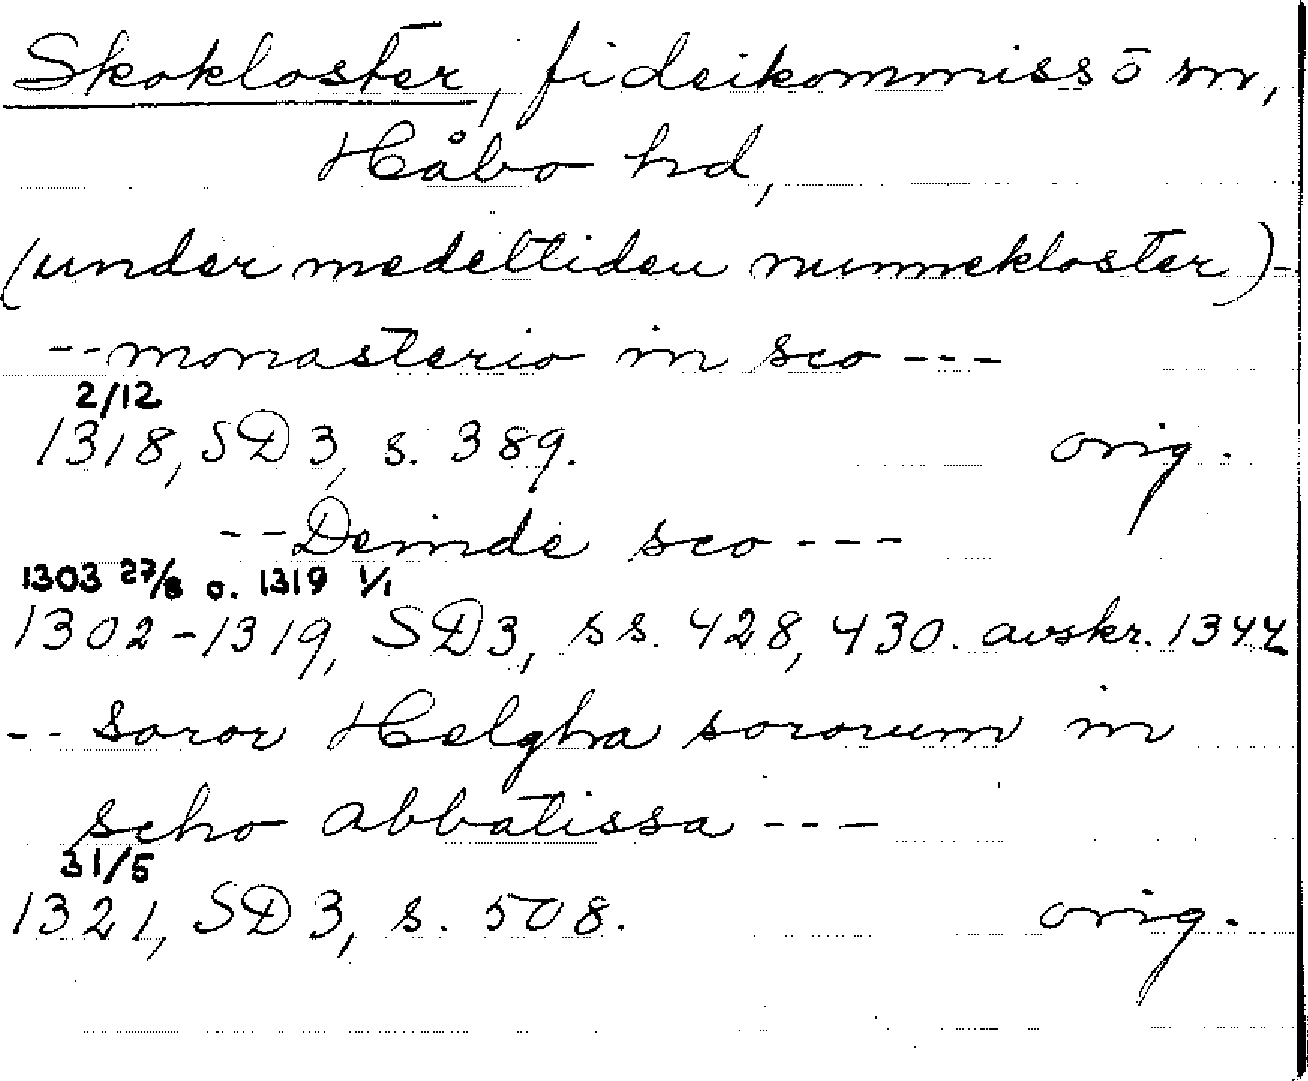 Skokloster, fideikommiss ō sn,
Håbo hd,
(under medeltiden nunnekloster) -
-- monasterio in sco ---
2/12
1318, SD 3, s. 389. orig.
-- Deinde sco ---
1303 27/8 o. 1319 1/1
1302-1319, SD3, ss. 428, 430. avskr. 1344
-- soror Helgha sororum in
scho abbatissa ---
31/5
1321, SD 3, s. 508. orig.